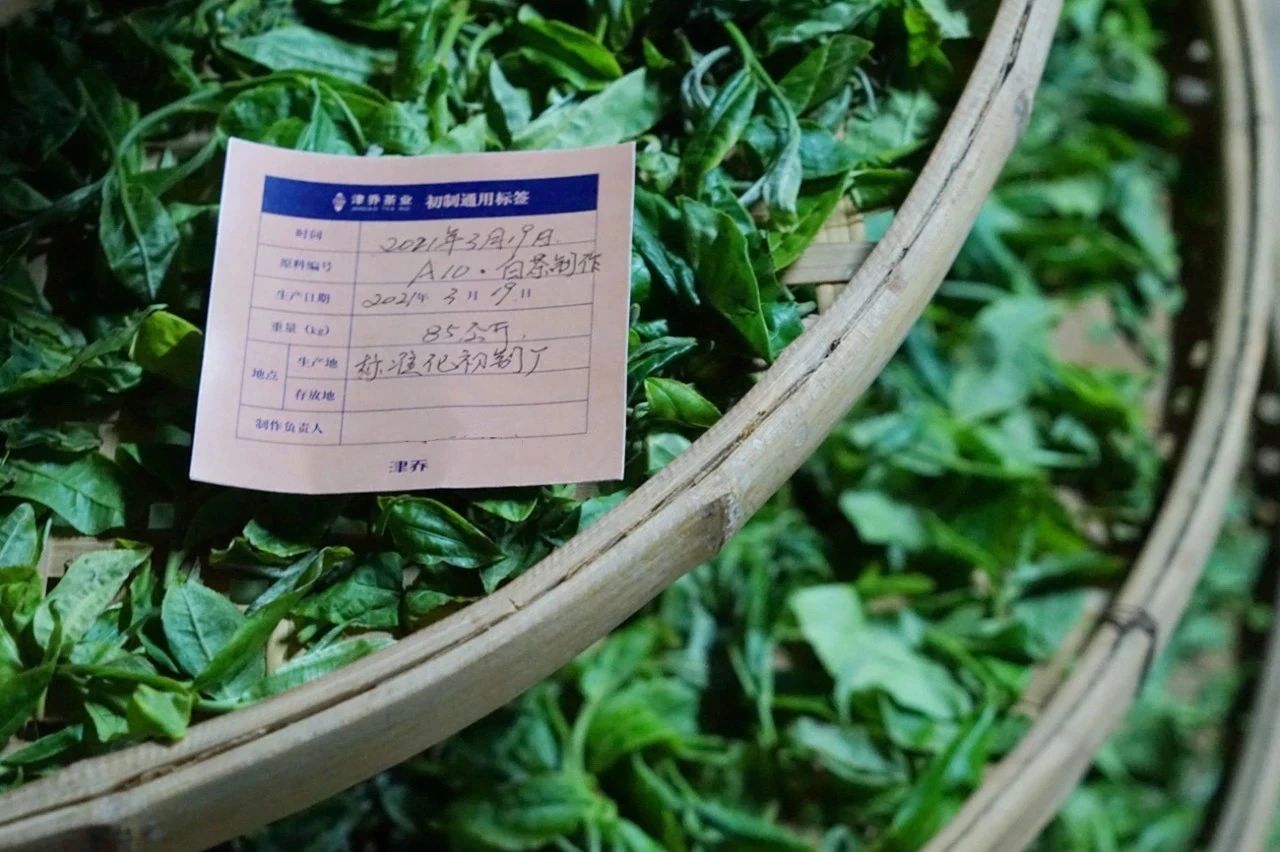 津乔茶业 初制通用标签
JINQIAO TEA
时间 2021年3月19日
原料编号 A10·白茶制作
生产日期 2021年 3月 19日
重量（kg） 85公斤
地点 生产地 标准化初制厂
存放地
制作负责人
津乔